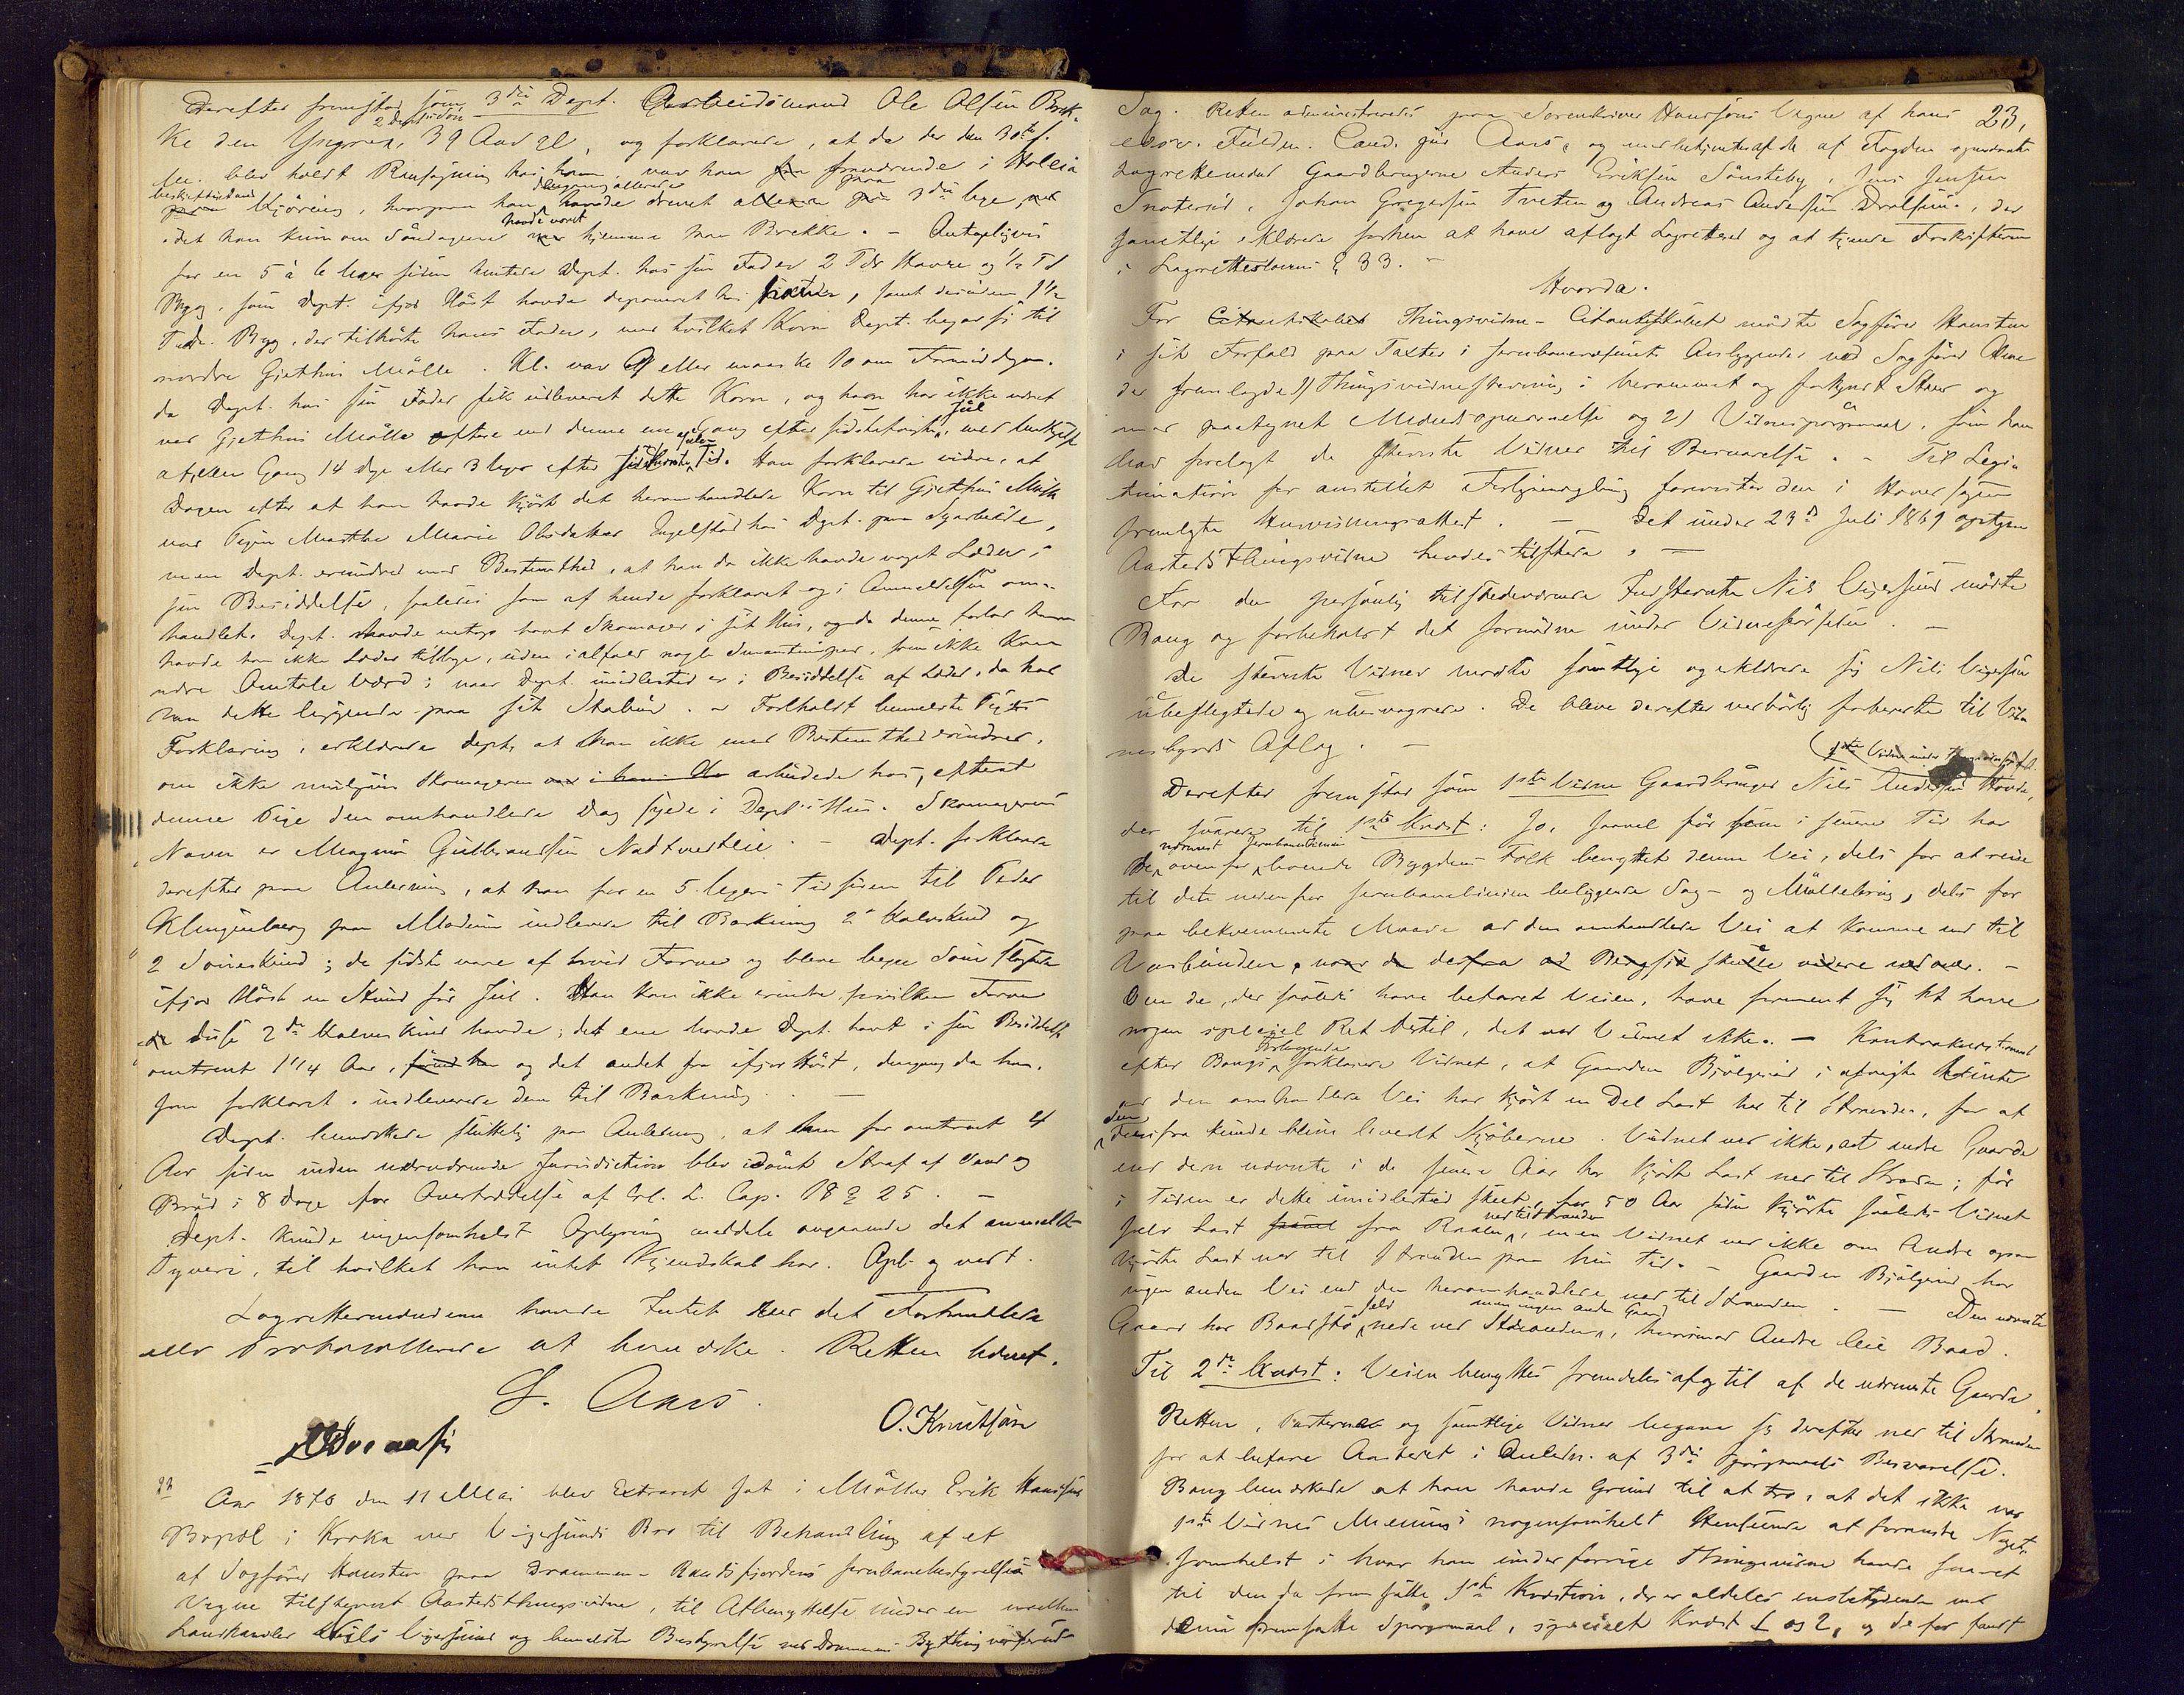 Derefter fremstod som 3die Dept. Arbeidsmand Ole Olsen Brek-
ke den Yngre, 39 Aar gl, og forklarede, at da der den 30te f.
M. blev holdt Ransagning hos ham, var han fraværende i Holleia
beskjæftiget med Kjøring, hvorpaa han dengang allerede havde drevet paa 3die Uge,
idet han kun om Søndagene havde været hjemme paa Brekke. - Antageligvis
for en 5 à 6 Uger siden hentede Dept. hos sin Fader 2 Tdr Havre og 1/2 Td
Byg, som Dept. ifjor Høst havde deponeret hos Faderen, samt desuden 1 1/2
Tdr. Byg, der tilhørte hans Fader, med hvilket Korn Dept. begav sig til
nordre Gjethus Mølle. Kl. var 9 eller maaske 10 om Formiddagen,
da Dept. hos sin Fader fik udleveret dette Korn, og han har ikke været
ved Gjethus Mølle oftere end denne ene Gang efter sidstafvigte Jul, med Undtagelse
af en Gang 14 Dage eller 3 Uger efter Juletid. Han forklarede videre, at
Dagen efter at han havde kjørt det heromhandlede Korn til Gjethus Mølle
var Pigen Marthe Marie Olsdatter Engelstad hos Dept. paa Syarbeide,
men Dept. erindrer med Bestemthed, at han da ikke havde noget Læder i
sin Besiddelse, saaledes som af hende forklaret og i Anmeldelsen om-
handlet. Dept. havde netop havt Skomager i sit Hus, og da denne forlod ham
havde han ikke Læder tilbage, uden ialfald nogle Smaastumper, som ikke kan
være Omtale værd; naar Dept. imidlertid er i Besiddelse af Læder, da har
han dette liggende paa sit Stabur. - Foreholdt bemeldte Piges
Forklaring, erklærede Dept. at han ikke med Bestemthed erindrer,
om ikke muligens Skomageren arbeidede hos, efterat
denne Pige den omhandlede Dag syede i Dept's Hus. Skomagerens
Navn er Magnus Gulbrandsen Nattvedtlie. - Dept. forklarede
derefter paa Anledning, at han for en 5 Ugers Tid siden til Peder
Klingenberg paa Modum indleverede til Barkning 2 Kalveskind og
2 Soueskind; de sidste vare af hvid Farve og bleve begge Soue slagtede
ifjor Høst en Stund før Jul. Han kan ikke erindre hvilken Farve
disse 2de Kalveskind havde; det ene havde Dept. havt i sin Besiddelse
omtrent 1 1/4 Aar, og det andet fra ifjor Høst, dengang da han,
som forklaret, indleverede dem til Barkning. -
Dept. bemærkede sluttelig paa Anledning, at han for omtrent 4
Aar siden inden nærværende Jurisdiction blev idømt Straf af Vand og
Brød i 8 Dage for Overtrædelse af Crl. L. Cap. 18 § 25. -
Dept. kunde ingensomhelst Oplysning meddele angaaende det anmeldte
Tyveri, til hvilket han intet Kjendskab har. Opl. og vedt.
Lagrettemændene havde Intet ved det Forhandlede
eller Protokollerede at bemærke. Retten hævet.
L. Aars.
O. Knutsen
Aar 1870 den 11 Mai blev Extraret sat i Møller Erik Hansens
Bopæl i Kroka ved Vigersunds Bro til Behandling af et
af Sagfører Hansteen paa Drammen-Randsfjordens Jernbanebestyrelses
Vegne tilstevnet Aastedsthingsvidne, til Afbenyttelse under en mellem
Landhandler Nils Vigersund og bemeldte Bestyrelse ved Drammens Bything verserende
23,
Sag. Retten administreredes paa Sorenskriver Hanssons Vegne af hans
edsv. Fuldm. Cand. jur Aars, og medbetjentes af de af Fogden opnævnte
Lagrettemænd Gaardbrugerne Anders Eriksen Sønsteby, Jens Jensen
Snaterud, Johan Gregersen Tveten og Andreas Andersen Drolsum, der
samtlige erklærede forhen at have aflagt Lagretteed og at kjende Forskrifterne
i Lagrettelovens § 33. -
Hvorda.
For Thingsvidne-Citantskabet mødte Sagfører Hansteen
i sit Forfald paa Taxter i Jernbanevæsenets Anliggender ved Sagfører Alme
der fremlagde 1) Thingsvidnestevning i berammet og forkyndt Stand og
med paategnet Mændsopnævnelse og 2) Vidnespørgsmaal, som han
bad forelagt de stevnte Vidner til Besvarelse. - Til Legi-
timation for anstillet Forligsmægling forevistes den i Hovedsagen
fremlagte Henvisningsattest. - Det under 23de Juli 1869 optagne
Aastedsthingsvidne havdes tilstede. -
For den personlig tilstedeværende Indstevnte Nils Vigersund mødte
Bang og forbeholdt det fornødne under Vidneførselen. -
De stevnte Vidner mødte samtlige og erklærede sig Nils Vigersund
ubeslegtede og ubesvogrede. De bleve derefter vedbørlig forberedte til Vid-
nesbyrds Aflæg. -
Derefter fremstod som 1ste Vidne Gaardbruger Nils Andersen Hovde,
der svarede til 1ste Kvæst: Jo, saavel før som i senere Tid har
de nærmest ovenfor Jernbanelinien boende Bygdens Folk benyttet denne Vei, dels for at reise
til dets nedenfor Jernbanelinien beliggende Sag- og Møllebrug, dels for
paa bekvemmeste Maade ad den omhandlede Vei at komme ned til
Aasbunden, naar de derfra ad Bergsjø skulle videre nedover. -
Om de, der saaledes have befaret Veien, have forment sig at have
nogen speciel Ret dertil, det ved Vidnet ikke. - Kontrakvæstioneret
efter Bangs Forlangende forklarede Vidnet, at Gaarden Bjølgerud i afvigte Vinter
ad den omhandlede Vei har kjørt en Del Last her til Stranden, for at
den derfra kunde blive leveret Kjøberne. Vidnet ved ikke, at andre Gaarde
end den nævnte i de senere Aar har kjørt Last ned til Stranden; før
i Tiden er dette imidlertid skeet, for 50 Aar siden kjørte saaledes Vidnet
selv Last fra Raaen ned til Stranden, men Vidnet ved ikke om Andre ogsaa
kjørte Last ned til Stranden paa hin Tid. - Gaarden Bjølgerud har
ingen anden Vei end den heromhandlede ned til Stranden. - Den nævnte
Gaard har Baadstø selv nede ved Stranden, men ingen anden Gaard, hvorimod Andre leie Baad.
Til 2den Kvæst: Veien benyttes fremdeles af og til af de nærmeste Gaarde.
Retten, Parterne og samtlige Vidner begave sig derefter ned til Stranden
for at befare Aastedet i Anledn. af 3die Spørgsmaals Besvarelse.
Bang bemærkede at han havde Grund til at tro, at det ikke var
1ste Vidnes Mening i nogensomhelst Henseende at forandre Noget-
somhelst i hvad han under forrige Thingsvidne havde svaret
til den da fremsatte 1ste Kvæstion, der er aldeles enslydende med
denne fremsatte Spørgsmaal, specielt Kvæst 1 og 2, og de for fandt